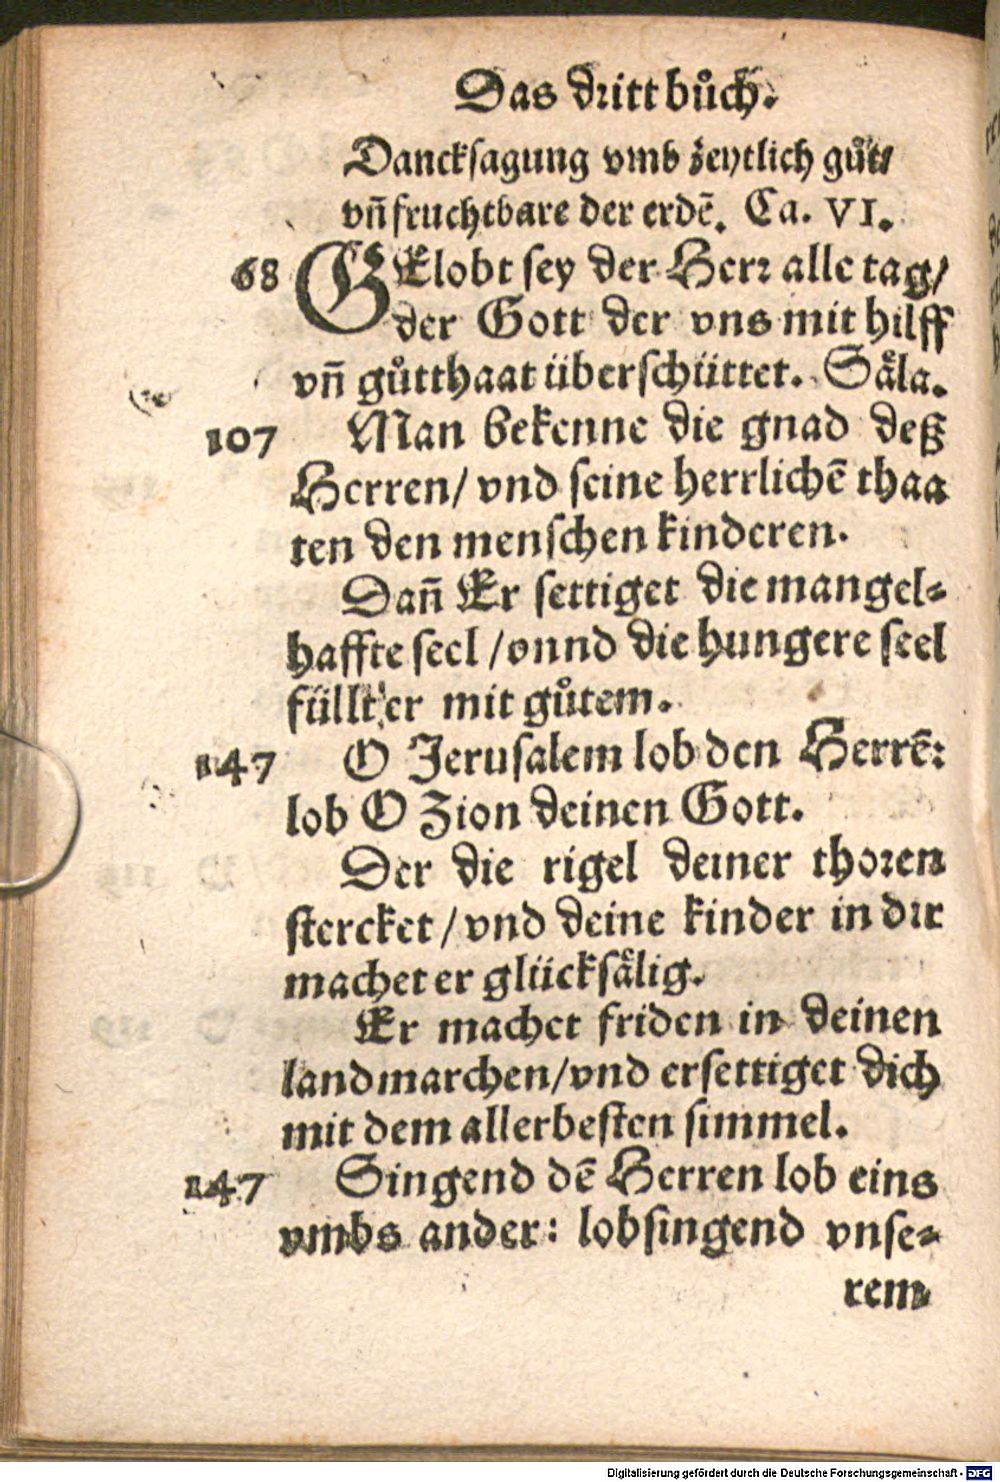 Das dritt bůch.
Dancksagung vmb zeytlich gůt/
vñ fruchtbare der erdẽ. Ca. VI.
68 GElobt sey der Herr alle tag/
der Gott der vns mit hilff
vñ gůtthaat überschüttet. Säla.
107 Man bekenne die gnad deß
Herren/ vnd seine herrlichẽ thaa
ten den menschen kinderen.
Dañ Er settiget die mangel-
haffte seel / vnnd die hungere seel
füllt er mit gůtem.
147 O Jerusalem lob den Herrẽ:
lob O Zion deinen Gott.
Der die rigel deiner thoren
stercket / vnd deine kinder in dir
machet er glücksälig.
Er machet friden in deinen
landmarchen/vnd ersettiget dich
mit dem allerbesten simmel.
147 Singend dẽ Herren lob eins
vmbs ander: lobsingend vnse-
rem
Digitalisierung gefördert durch die Deutsche Forschungsgemeinschaft - DFG